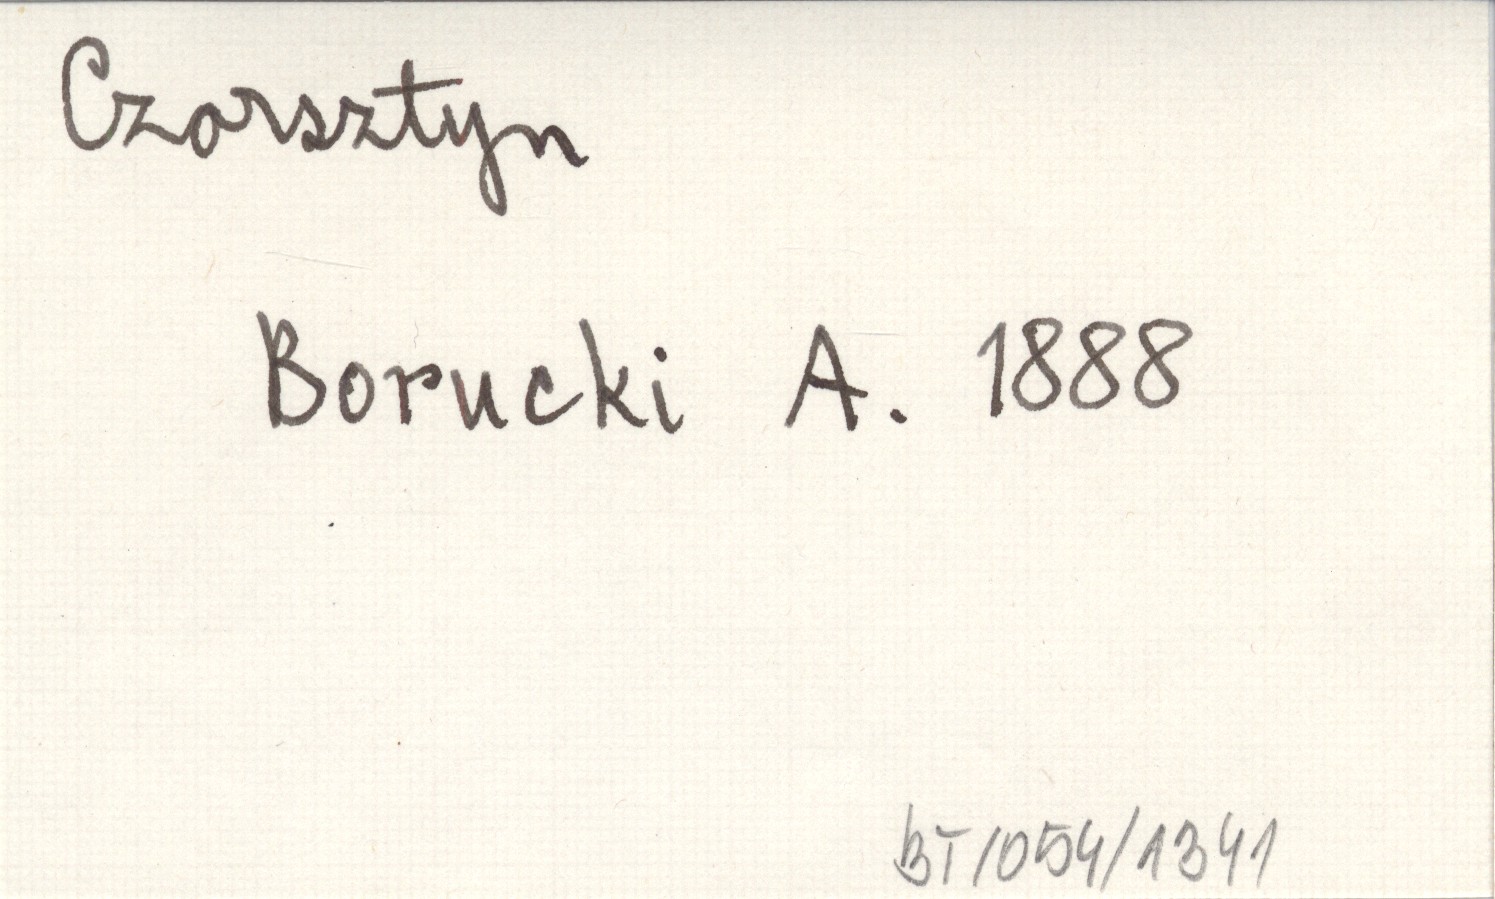 Czorsztyn
Borucki A. 1888
BT/054/1341